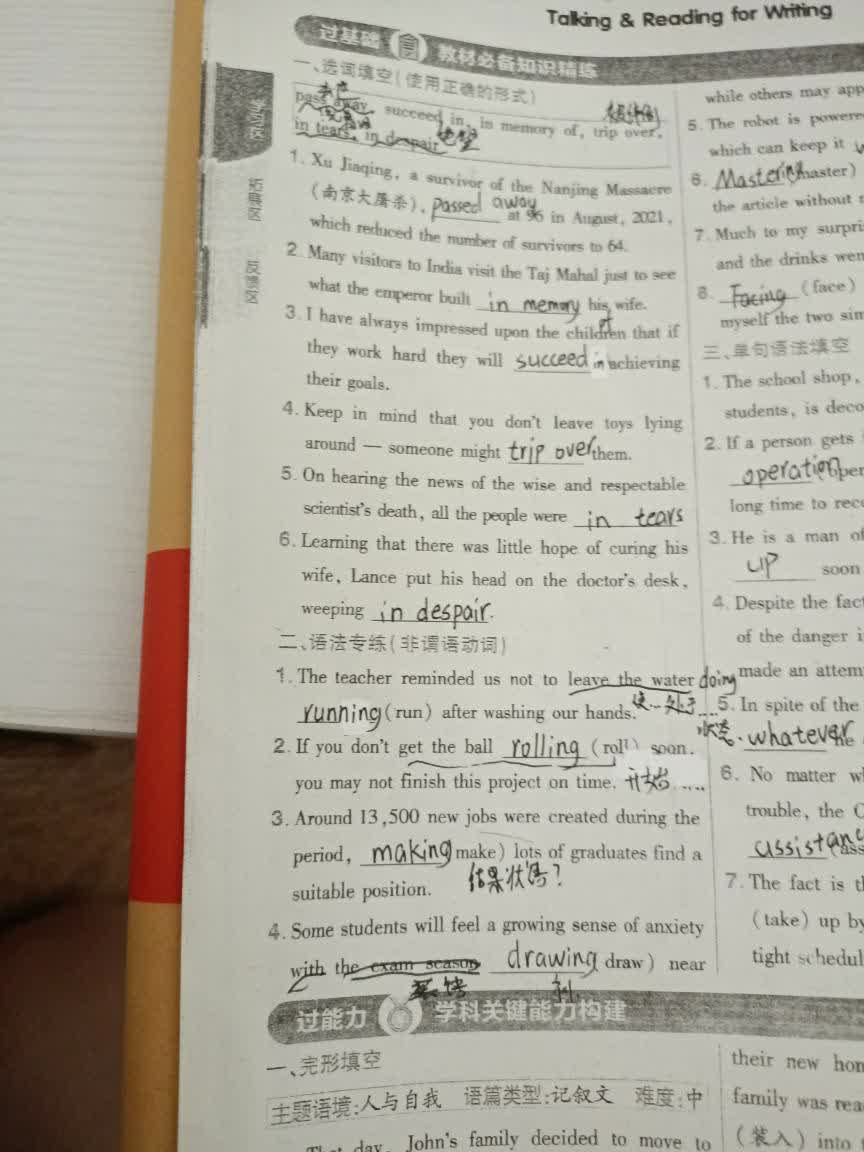 Talking & Reading for Writing
过基础 教材必备知识精练
一、选词填空(使用正确的形式)
pass away, succeed in, in memory of, trip over,
in tears, in despair
绝望
1. Xu Jiaqing, a survivor of the Nanjing Massacre
(南京大屠杀), passed away at 96 in August, 2021,
which reduced the number of survivors to 64.
2. Many visitors to India visit the Taj Mahal just to see
what the emperor built in memory of his wife.
3. I have always impressed upon the children that if
they work hard they will succeed in achieving
their goals.
4. Keep in mind that you don't leave toys lying
around — someone might trip over them.
5. On hearing the news of the wise and respectable
scientist's death, all the people were in tears
6. Learning that there was little hope of curing his
wife, Lance put his head on the doctor's desk,
weeping in despair.
二、语法专练(非谓语动词)
1. The teacher reminded us not to leave the water doing
running (run) after washing our hands. 使…处于…
状态.
2. If you don't get the ball rolling (roll) soon,
you may not finish this project on time. 开始....
3. Around 13,500 new jobs were created during the
period, making make) lots of graduates find a
suitable position. 结果状语?
4. Some students will feel a growing sense of anxiety
with the exam season drawing draw) near
过能力 学科关键能力构建
一、完形填空
主题语境:人与自我 语篇类型:记叙文 难度:中
That day, John's family decided to move to
学习区
拓展区
反馈区
while others may app
5. The robot is powere
which can keep it
6. Mastering (master)
the article without
7. Much to my surpri
and the drinks wen
8. Facing (face)
myself the two sim
三、单句语法填空
1. The school shop,
students, is deco
2. If a person gets
operation (oper
long time to reco
3. He is a man of
up soon
4. Despite the fact
of the danger i
made an attem
5. In spite of the
whatever he
6. No matter wh
trouble, the C
assistance (ass
7. The fact is th
(take) up by
tight schedul
their new hom
family was rea
(装入) into